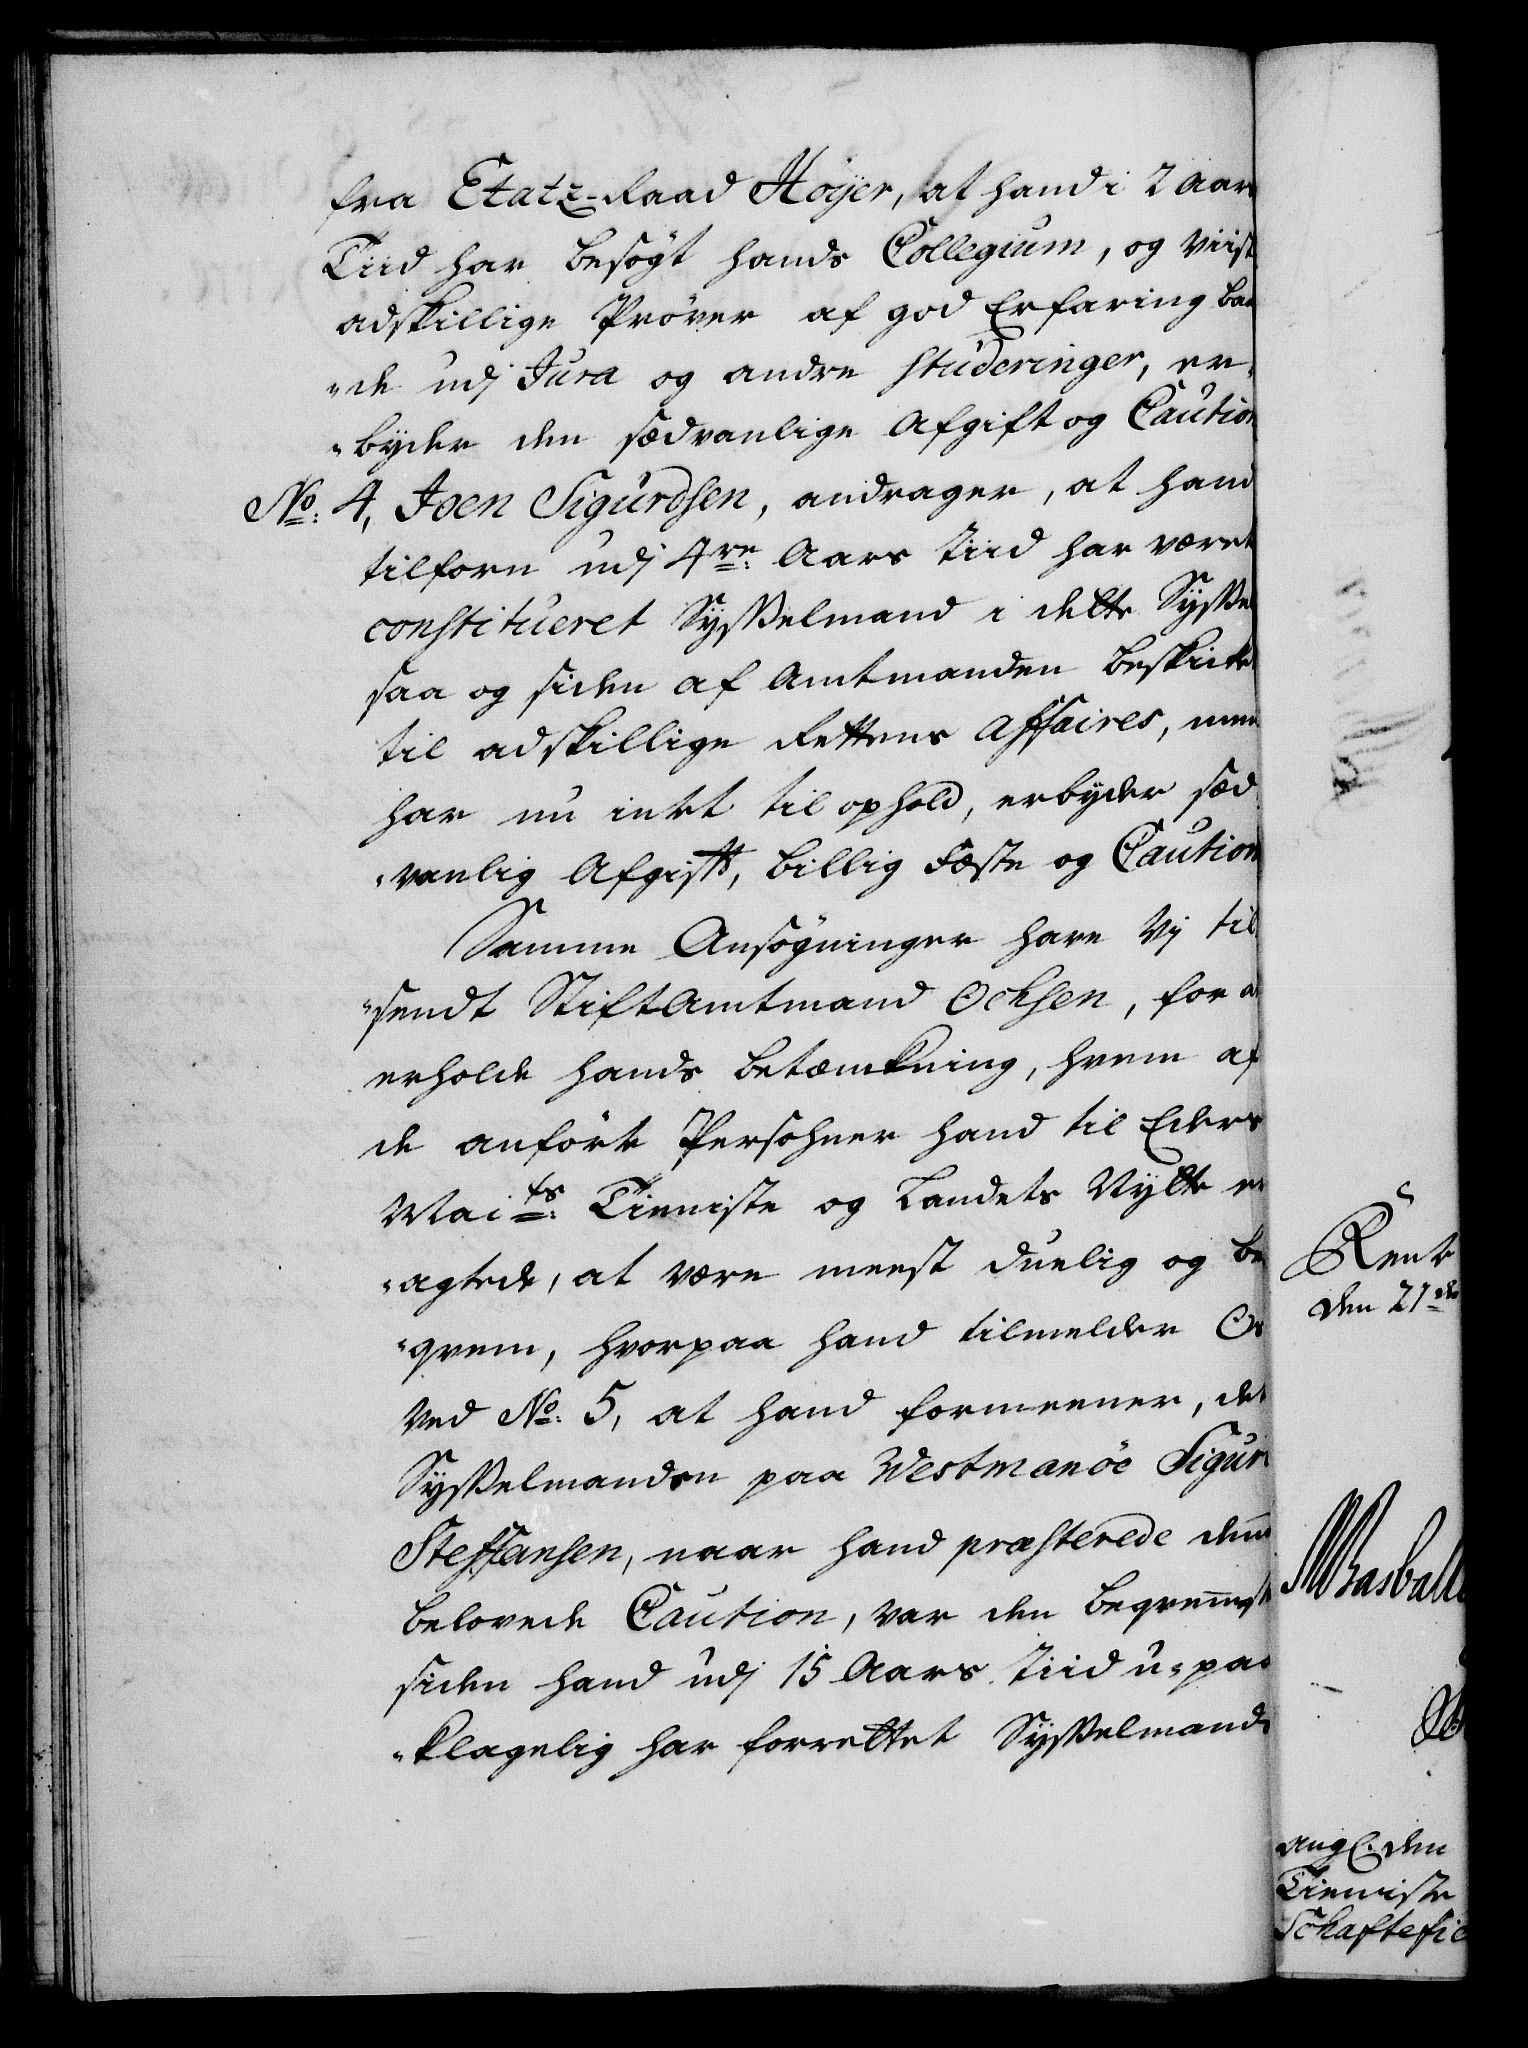 fra Etatz-Raad Höyer, at hand i 2 Aars
Tiid har besögt hands Collegium, og viist
adskillige Pröver af god Erfaring baa
"de udj Jura og andre studeringer, er"
"byder den sædvanlige Afgift og Caution
No: 4, Joen Sigurdsen, andrager, at hand
tilforn udj 4re Aars Tiid har været
constitueret Sysselmand i dette Syssel
saa og siden af Amtmanden beskicket
til adskillige Rettens affaires, men
har nu intet til ophold, erbyder sæd
"vanlig Afgift, billig Fæste og Caution
Samme Ansögninger have Vj til
"sendt StiftAmtmand Ochsen, for at
erholde hands betænkning, hvem af
de anförte Persohner hand til Eders
Maits: Tienniste og Landets Nytte er
"agtede, at være meest duelig og be
"qvem, hvorpaa hand tilmelder Os
ved No: 5, at hand formeener, det
Sysselmanden paa Westmanöe Sigur
Steffansen, naar hand præsterede den
belovede Caution, var den beqvemmeste
siden hand udj 15 Aars Tiid u-paa
"klagelig har forrettet Sysselmands
Rente
den 21de
Aug: den
Tienniste
Schaftefie